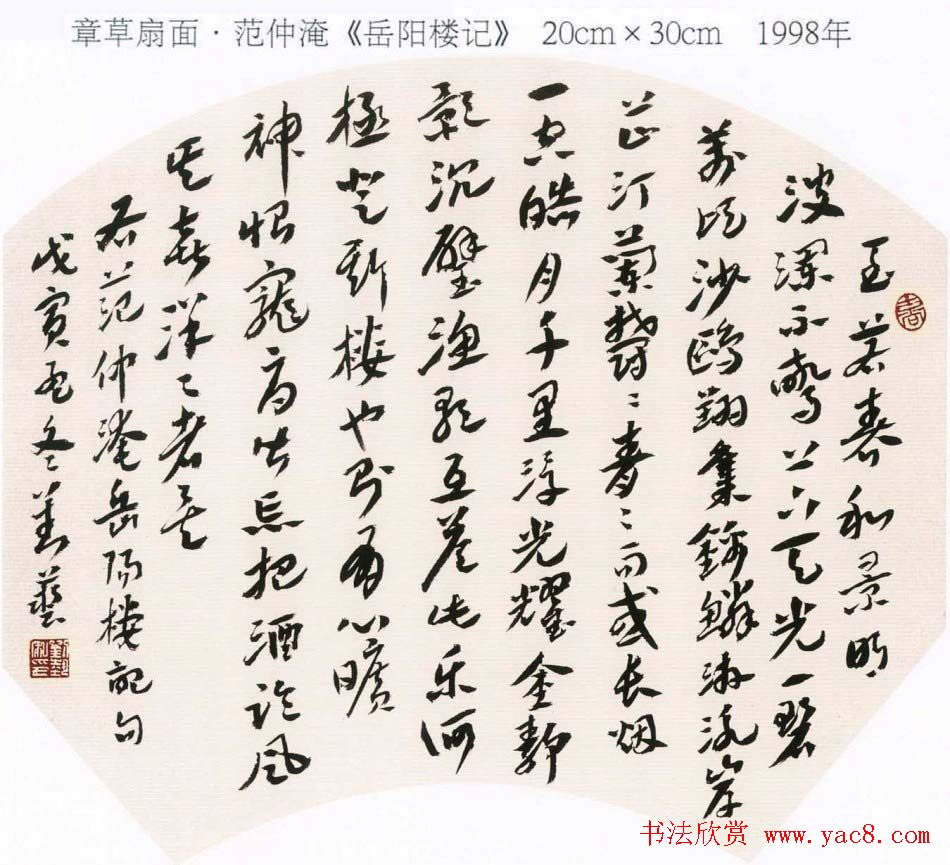 章草扇面·范仲淹《岳阳楼记》 20cm×30cm 1998年
至若春和景明
波瀾不驚上下天光一碧
萬頃沙鷗翔集錦鱗游泳岸
芷汀蘭鬱〻青〻而或长烟
一空皓月千里浮光耀金静
影沉璧渔歌互答此乐何
極登斯樓也則有心曠
神怡寵辱皆忘把酒临风
其喜洋〻者矣
右范仲淹岳陽樓記句
戊寅孟冬劉藝
书法欣赏 www.yac8.com